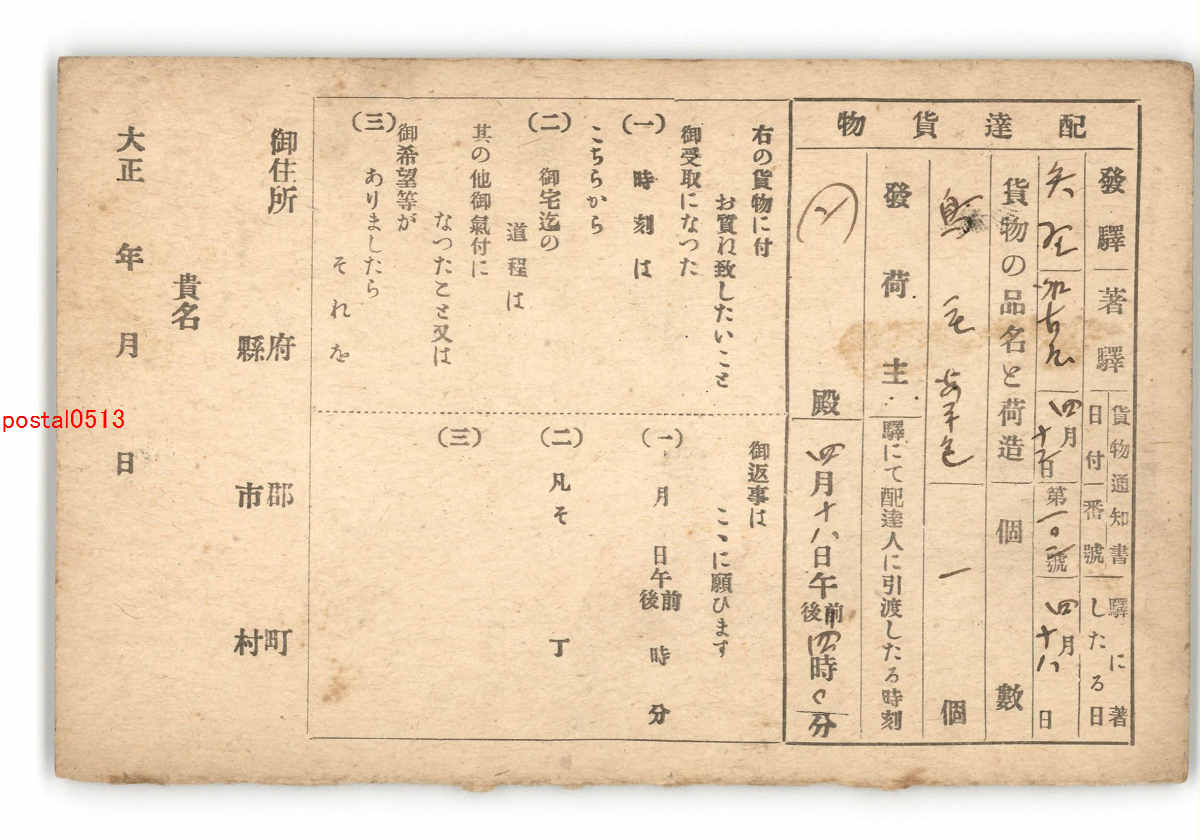 配達貨物
發驛
著驛
貨物通知書
日付
番號
驛に著
したる日
四月十六日
第一〇二號
四月十八日
貨物の品名と荷造
個數
一個
發荷主
驛にて配達人に引渡したる時刻
殿
四月十八日午前後四時〇分
右の貨物に付
お買ね致したいこと
御受取になつた
(一)時刻は
こちらから
(二)御宅迄の
道程は
其の他御氣付に
なつたこと又は
(三)御希望等が
ありましたら
それを
御返事は
こゝに願ひます
(一)月日午前後時分
(二)凡そ丁
(三)
御住所
府縣
郡市
町村
貴名
大正年月日
postal0513